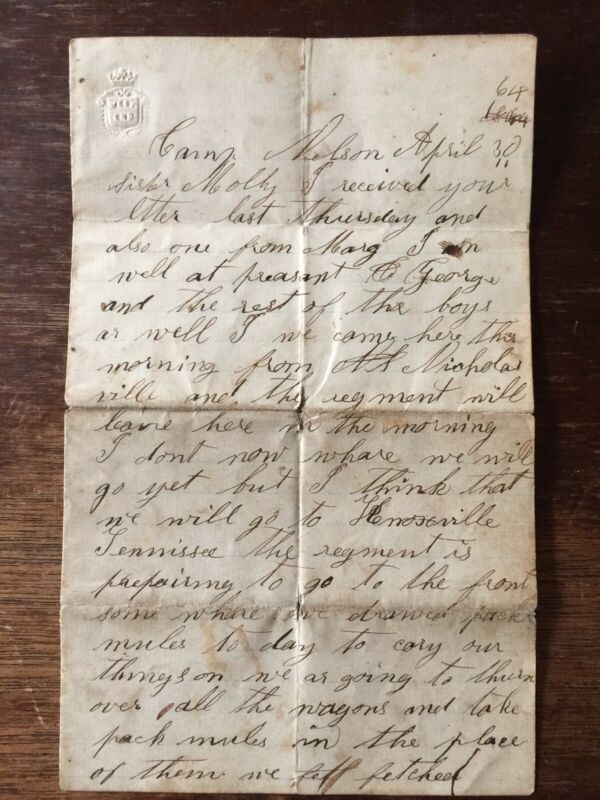 64
Camp Nelson April 30
sister Molly I received your
letter last thursday and
also one from Marg I am
well at preasant & George
and the rest of the boys
ar well I we came here this
morning from Nicholas
ville and the regment will
leave here in the morning
I dont now whare we will
go yet but I think that
we will go to Knoxeville
Tennissee the regment is
prepairing to go to the front
some whare we drawed pack
mules to day to cary our
things on we ar going to thurn
over all the wagons and take
pack mules in the place
of them we fetched